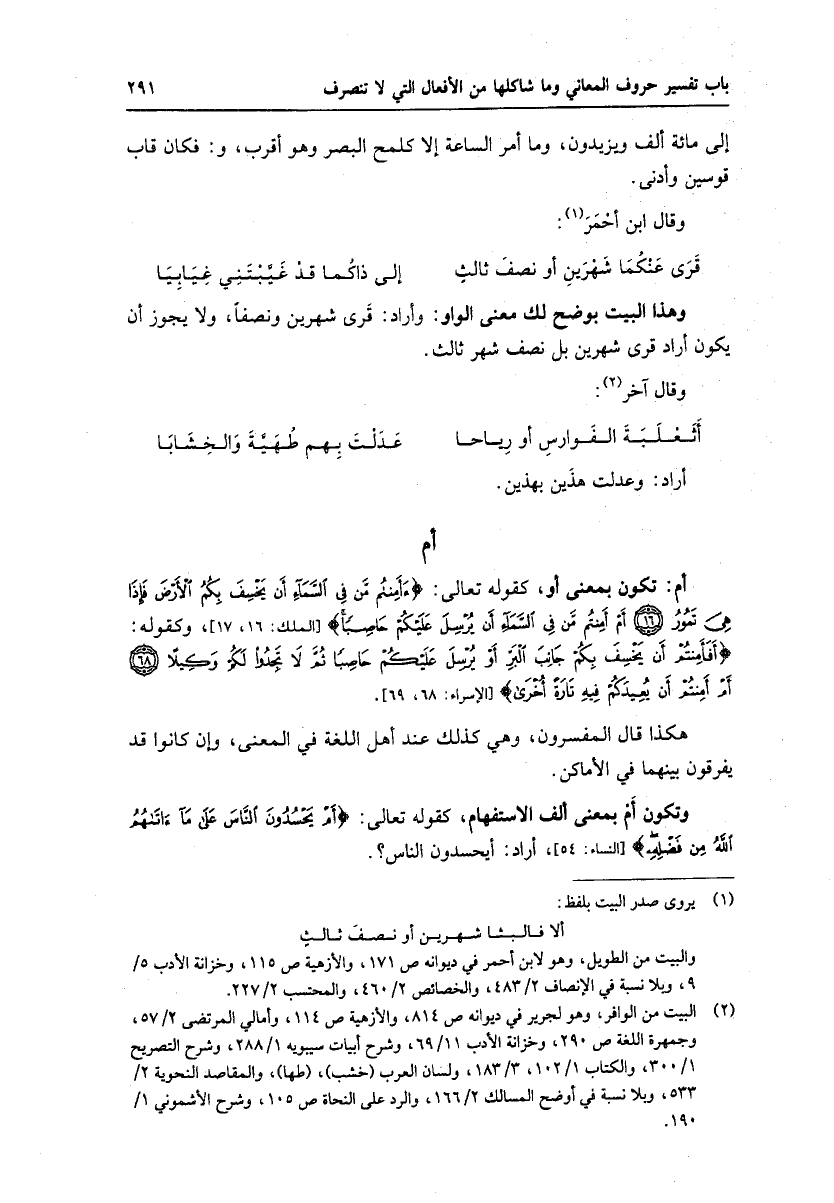 باب تفسير حروف المعاني وما شاكلها من الأفعال التي لا تنصرف ٢٩١
إلى مائة ألف ويزيدون، وما أمر الساعة إلا كلمح البصر وهو أقرب، و: فكان قاب
قوسين وأدنى.
وقال ابن أحْمَرَ(١):
قَرَى عَنْكُمَا شَهْرَينِ أو نصفَ ثالثٍ إلى ذاكُما قدْ غَيَّبْتَنِي غِيَابِيَا
وهذا البيت يوضح لك معنى الواو: وأراد: قَرى شهرين ونصفاً، ولا يجوز أن
يكون أراد قرى شهرين بل نصف شهر ثالث.
وقال آخر(٢):
أَثَعْلَبَةَ الفَوارسِ أو رِياحا عَدَلْتَ بِهم طُهَيَّةَ وَالخِشَابَا
أراد: وعدلت هذَين بهذين.
أم
أم: تكون بمعنى أو، كقوله تعالى: ﴿ءَأَمِنتُم مَّن فِي السَّمَآءِ أَن يَخْسِفَ بِكُمُ ٱلْأَرْضَ فَإِذَا
هِىَ تَمُورُ ١٦ أَمْ أَمِنتُم مَّن فِي ٱلسَّمَآءِ أَن يُرْسِلَ عَلَيْكُمْ حَاصِبًا﴾ [الملك: ١٦، ١٧]، وكقوله:
﴿أَفَأَمِنتُمْ أَن يَخْسِفَ بِكُمْ جَانِبَ ٱلْبَرِّ أَوْ يُرْسِلَ عَلَيْكُمْ حَاصِبًا ثُمَّ لَا تَجِدُوا لَكُمْ وَكِيلًا ٦٨
أَمْ أَمِنتُمْ أَن يُعِيدَكُمْ فِيهِ تَارَةً أُخْرَىٰ﴾ [الإسراء: ٦٨، ٦٩].
هكذا قال المفسرون، وهي كذلك عند أهل اللغة في المعنى، وإن كانوا قد
يفرقون بينهما في الأماكن.
وتكون أَمْ بمعنى ألف الاستفهام، كقوله تعالى: ﴿أَمْ يَحْسُدُونَ ٱلنَّاسَ عَلَىٰ مَآ ءَاتَىٰهُمُ
ٱللَّهُ مِن فَضْلِهِۦ﴾ [النساء: ٥٤]، أراد: أيحسدون الناس؟.
(١) يروى صدر البيت بلفظ:
ألا فالبثا شهرين أو نصفَ ثالثٍ
والبيت من الطويل، وهو لابن أحمر في ديوانه ص ١٧١، والأزهية ص ١١٥، وخزانة الأدب ٥/
٩، وبلا نسبة في الإنصاف ٢/ ٤٨٣، والخصائص ٢/ ٤٦٠، والمحتسب ٢/ ٢٢٧.
(٢) البيت من الوافر، وهو لجرير في ديوانه ص ٨١٤، والأزهية ص ١١٤، وأمالي المرتضى ٢/ ٥٧،
وجمهرة اللغة ص ٢٩٠، وخزانة الأدب ١١/ ٦٩، وشرح أبيات سيبويه ١/ ٢٨٨، وشرح التصريح
١/ ٣٠٠، والكتاب ١/ ١٠٢، ٣/ ١٨٣، ولسان العرب (خشب)، (طها)، والمقاصد النحوية ٢/
٥٣٣، وبلا نسبة في أوضح المسالك ٢/ ١٦٦، والرد على النحاة ص ١٠٥، وشرح الأشموني ١/
١٩٠.